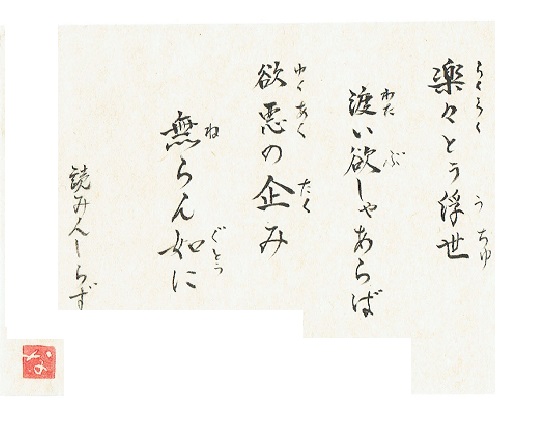 らくらく うちゆ
楽々とう浮世
わた ぶ
渡い欲しゃあらば
ゆくあく たく
欲悪の企み
ね ぐとぅ
無らん如に
読み人しらず
な